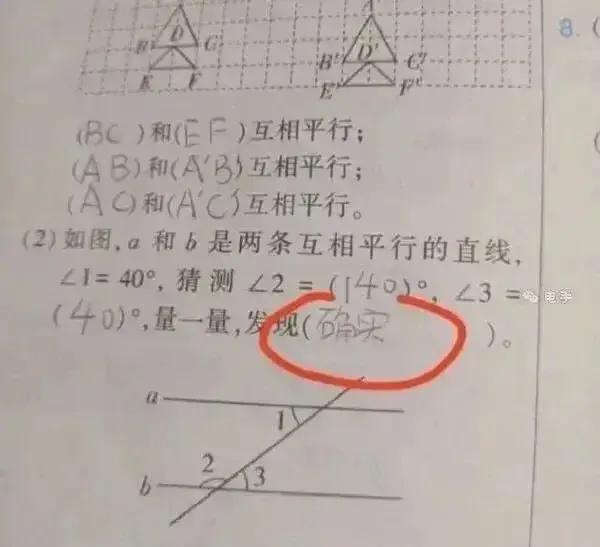 A
B D C
B' D' C'
E F
E' F'
8. (
(BC)和(EF)互相平行；
(AB)和(A'B')互相平行；
(AC)和(A'C')互相平行。
(2)如图，a 和 b 是两条互相平行的直线，
∠1=40°，猜测∠2=(140)°，∠3=
(40)°，量一量，发现(确实)。
a
1
2
b 3